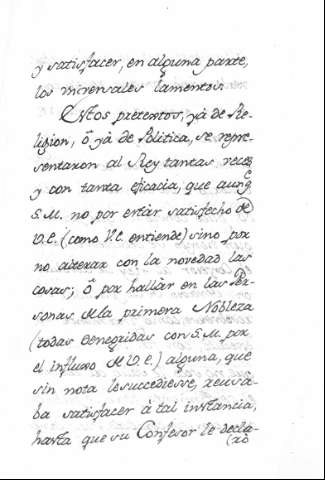 y satisfacer, en alguna parte,
los incensales lamentos.
Estos pretextos, yà de Re-
ligion, ô yà de Politica, se repre-
sentaron al Rey tantas veces
y con tanta eficacia, que aunq̃
S.M. no por estàr satisfecho de
V.E. (como V.E. entiende) sino por
no alterar con la novedad las
cosas; ô por hallàr en las Per-
sonas de la primera Nobleza
(todas denegridas con S.M. por
el influxo de V.E.) alguna, que
sin nota le succediesse, reusa-
ba satisfacer à tal instancia,
hasta que su Confesor le decla-
(rò